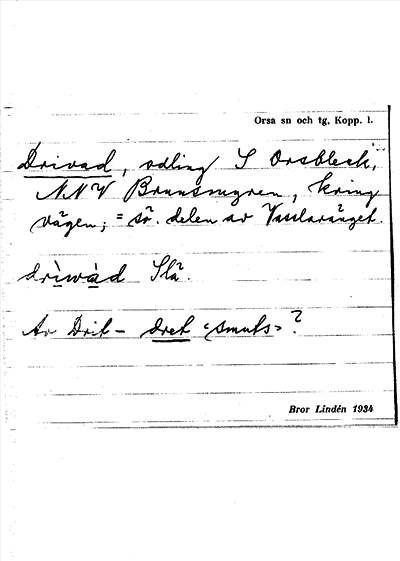 Orsa sn och tg, Kopp. l.
Drivad, odling S Orsbleck,
NNV Brunsmyren, kring
vägen; = sö. delen av Vasslaränget.
drìwàd Slä.
Av Drit- dret "smuts"?
Bror Lindén 1934